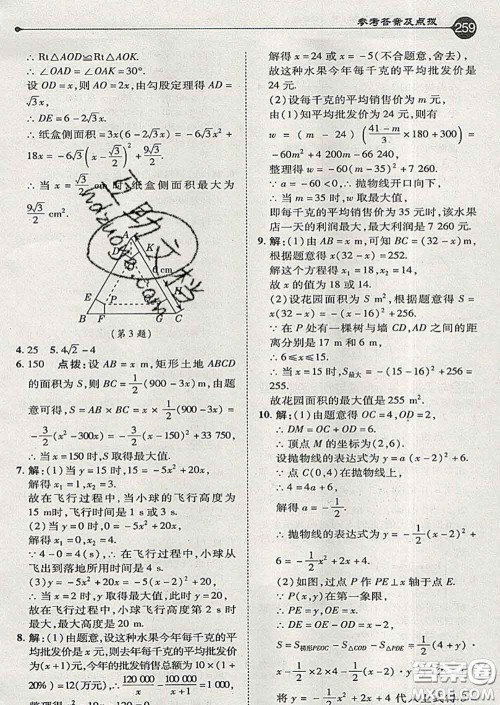 参考答案及点拨 259
∴ Rt△AOD≌Rt△AOK.
∴ ∠OAD=∠OAK=30°.
设 OD=x,则 AO=2x,由勾股定理得
∴ DE=6-2√3x.
∴ 纸盒侧面积=3x(6-2√3x)=-6√3x²+
18x=-6√3(x-√3/2)²+9√3/2.
∴ 当 x=√3/2 时,纸盒侧面积最大为
9√3/2 cm².
A
D
K
6 cm
E
P
B F G C
(第 3 题)
4. 25 5. 4√2-4
6. 150 点拨:设 AB=x m,矩形土地 ABCD
的面积为 S,则 BC=1/2(900-3x) m,由题
意可得,S=AB×BC=x×1/2(900-3x)=
-3/2(x²-300x)=-3/2(x-150)²+33 750,
∴ 当 x=150 时,S 取最大值.
7. 解:(1)当 y=15 时,15=-5x²+20x,
解得 x₁=1,x₂=3.
故在飞行过程中,当小球的飞行高度为
15 m时,飞行时间为 1 s 或 3 s.
(2)当 y=0 时,0=-5x²+20x,
解得 x₁=0,x₂=4.
∵ 4-0=4(s),∴ 在飞行过程中,小球从
飞出到落地所用时间是 4 s.
(3)y=-5x²+20x=-5(x-2)²+20,
∴ 当 x=2 时,y 取得最大值 20.
故在飞行过程中,小球飞行高度第 2 s 时
最大,最大高度是 20 m.
8. 解:(1)由题意,设这种水果今年每千克的平
均批发价是 x 元,则去年每千克的平均批发
价为(x+1)元,今年的批发销售总额为 10×(1+
20%)=12(万元),∴ 120 000/x-100 000/(x+1)=1 000,
解得 x=24 或 x=-5(不合题意,舍去).
故这种水果今年每千克的平均批发价是
24 元.
(2)设每千克的平均销售价为 m 元,
由(1)知平均批发价为 24 元,则有
w=(m-24)((41-m)/3×180+300)=
-60m²+4 200m-66 240,
整理得 w=-60(m-35)²+7 260.
∵ a=-60<0,∴ 抛物线开口向下,
∴ 当 m=35 时,w 取最大值,
即每千克的平均销售价为 35 元时,该水果
店一天的利润最大,最大利润是 7 260 元.
9. 解:(1)由 AB=x m,可知 BC=(32-x) m,
根据题意得 x(32-x)=252.
解这个方程得 x₁=18,x₂=14,
故 x 的值为 18 或 14.
(2)设花园面积为 S m²,根据题意得 S=
x(32-x)=-(x-16)²+256.
∵ 在 P 处有一棵树与墙 CD,AD 之间的距
离分别是 17 m 和 6 m,
∴ 6≤x≤15.
∴ 当 x=15 时,S最大=-(15-16)²+256=
255.
故花园面积的最大值是 255 m².
10. 解:(1)由题意得 OC=4,OD=2,
∴ DM=OC+OD=6.
∴ 顶点 M 的坐标为(2,6).
设抛物线的表达式为 y=a(x-2)²+6,
根据题意得 4=a(0-2)²+6,
解得 a=-1/2.
∴ 抛物线的表达式为 y=-1/2(x-2)²+
6=-1/2x²+2x+4.
(2)如图,过点 P 作 PE⊥x 轴于点 E.
∵ P(x,y)在第一象限,
∴ PE=y,OE=x.
∴ S=S梯形PEOC-S△COD-S△PDE=1/2(4+y)·
x-1/2×2×4-1/2(x-2)·y=2x+y-4.